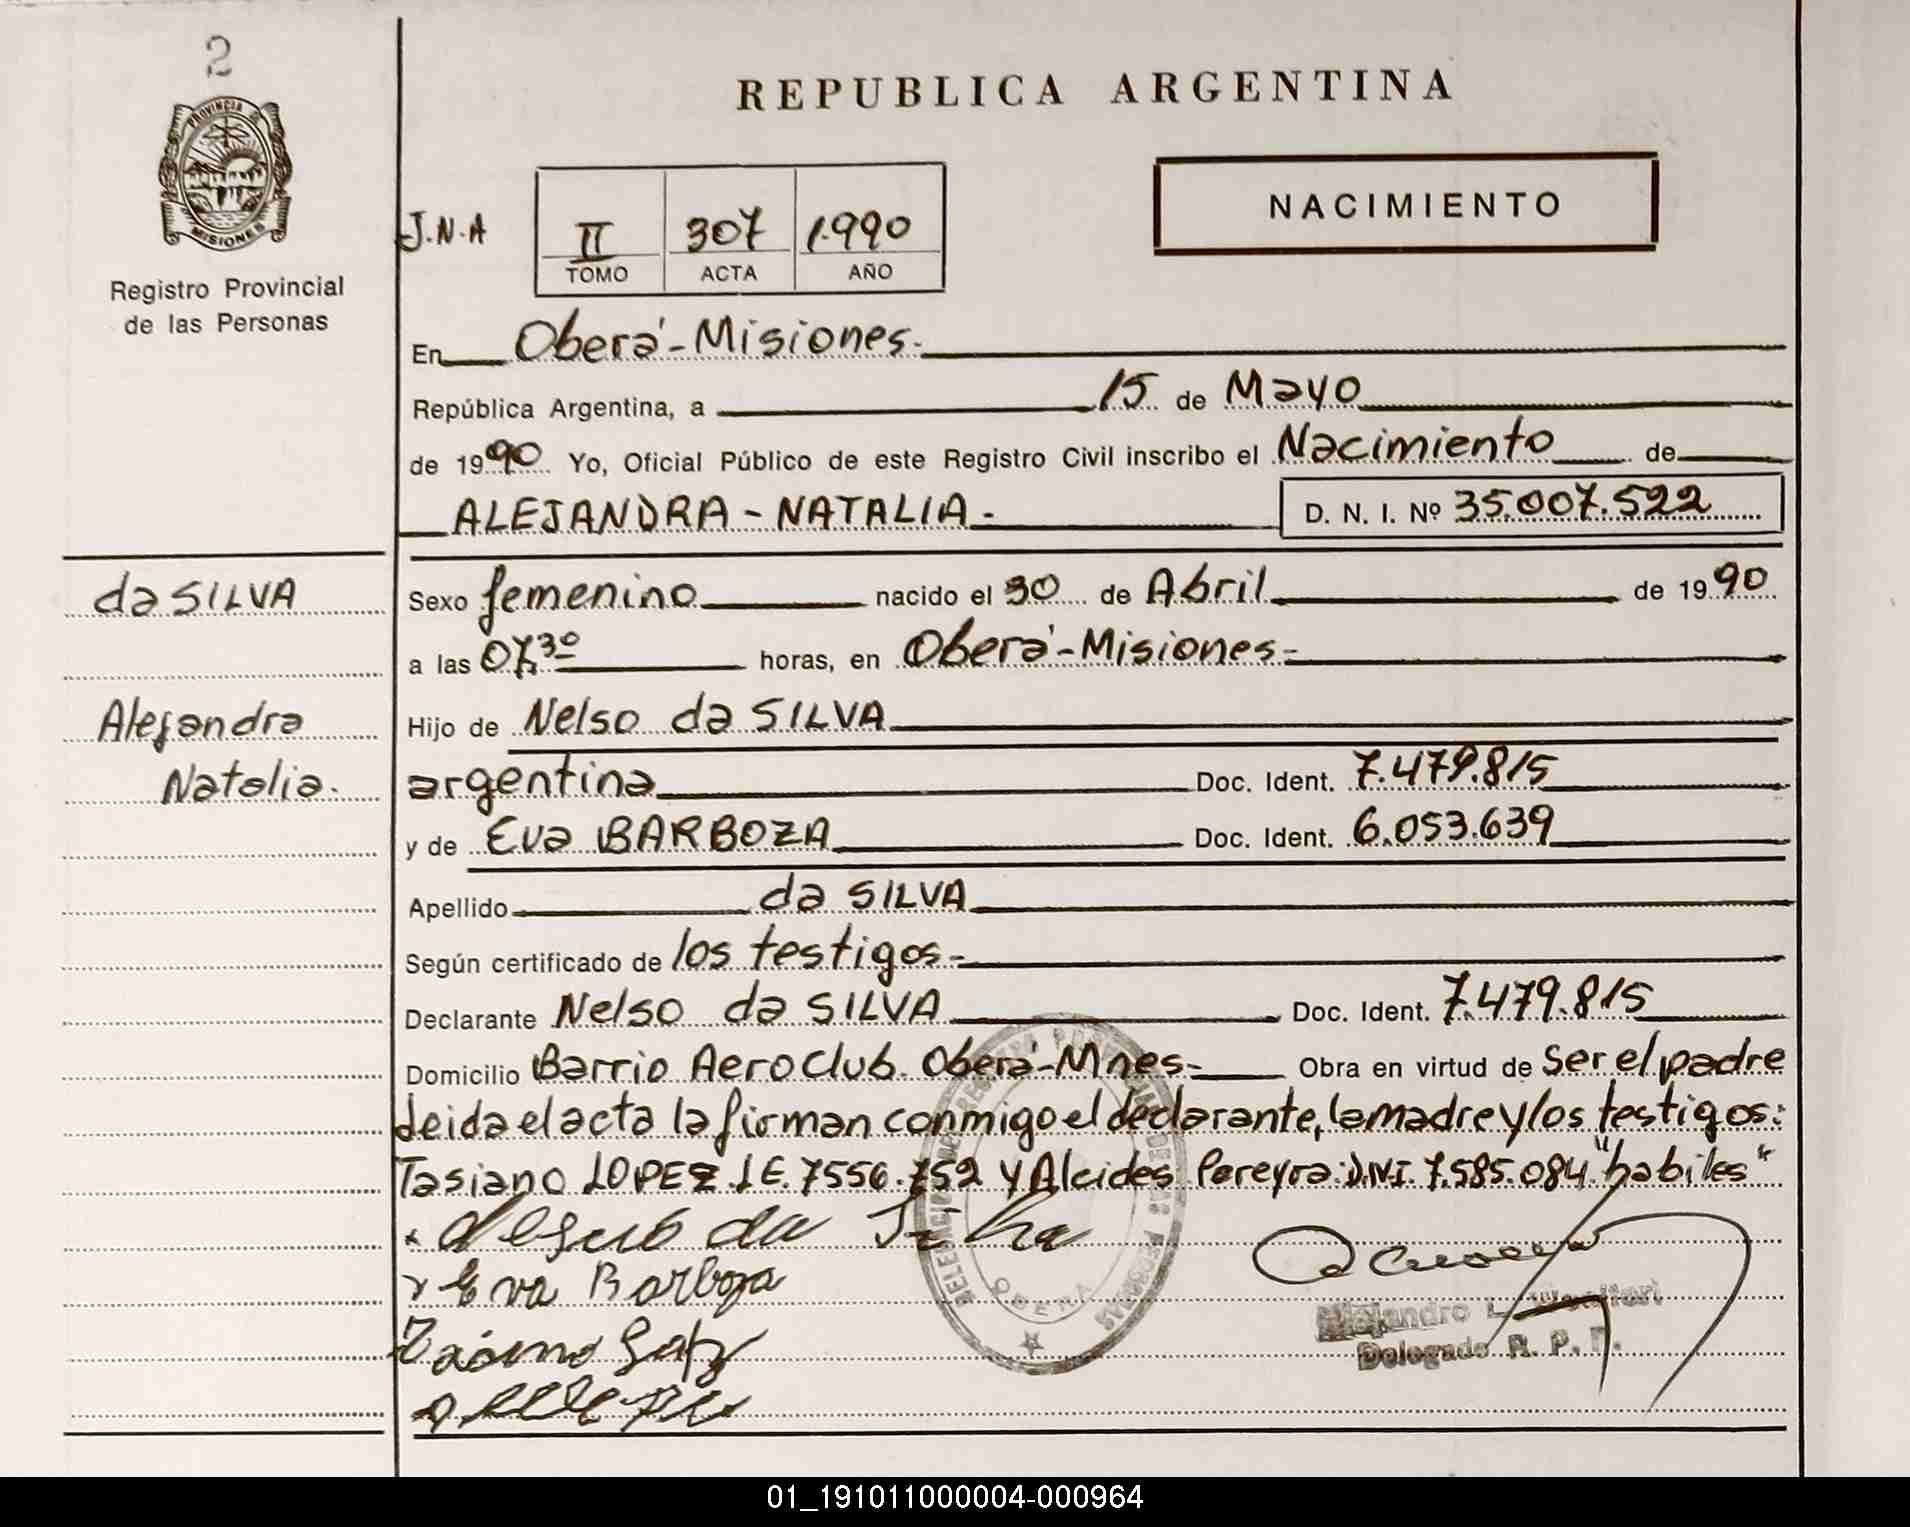 2
PROVINCIA
MISIONES
Registro Provincial
de las Personas
REPUBLICA ARGENTINA
NACIMIENTO
J.N.A
II 307 1.990
TOMO ACTA AÑO
En Oberá-Misiones-
República Argentina, a 15 de Mayo
de 1990 Yo, Oficial Público de este Registro Civil inscribo el Nacimiento de
ALEJANDRA-NATALIA-
D. N. I. Nº 35.007.522
da SILVA
Alejandra
Natalia.
Sexo femenino nacido el 30 de Abril de 1990
a las 07,30 horas, en Oberá-Misiones-
Hijo de Nelso da SILVA
argentina Doc. Ident. 7.479.815
y de Eva BARBOZA Doc. Ident. 6.053.639
Apellido da SILVA
Según certificado de los testigos-
Declarante Nelso da SILVA Doc. Ident. 7.479.815
Domicilio Barrio AeroClub. Oberá-Mnes- Obra en virtud de Ser el padre
Leida el acta la firman conmigo el declarante, la madre y los testigos:
Tasiano LOPEZ. L.E. 7556.752 y Alcides Pereyra: D.N.I. 7.585.084 "habiles"
da Silva
Eva Barboza
OBERA
Alejandro L.
Delegado R. P. P.
01_191011000004-000964